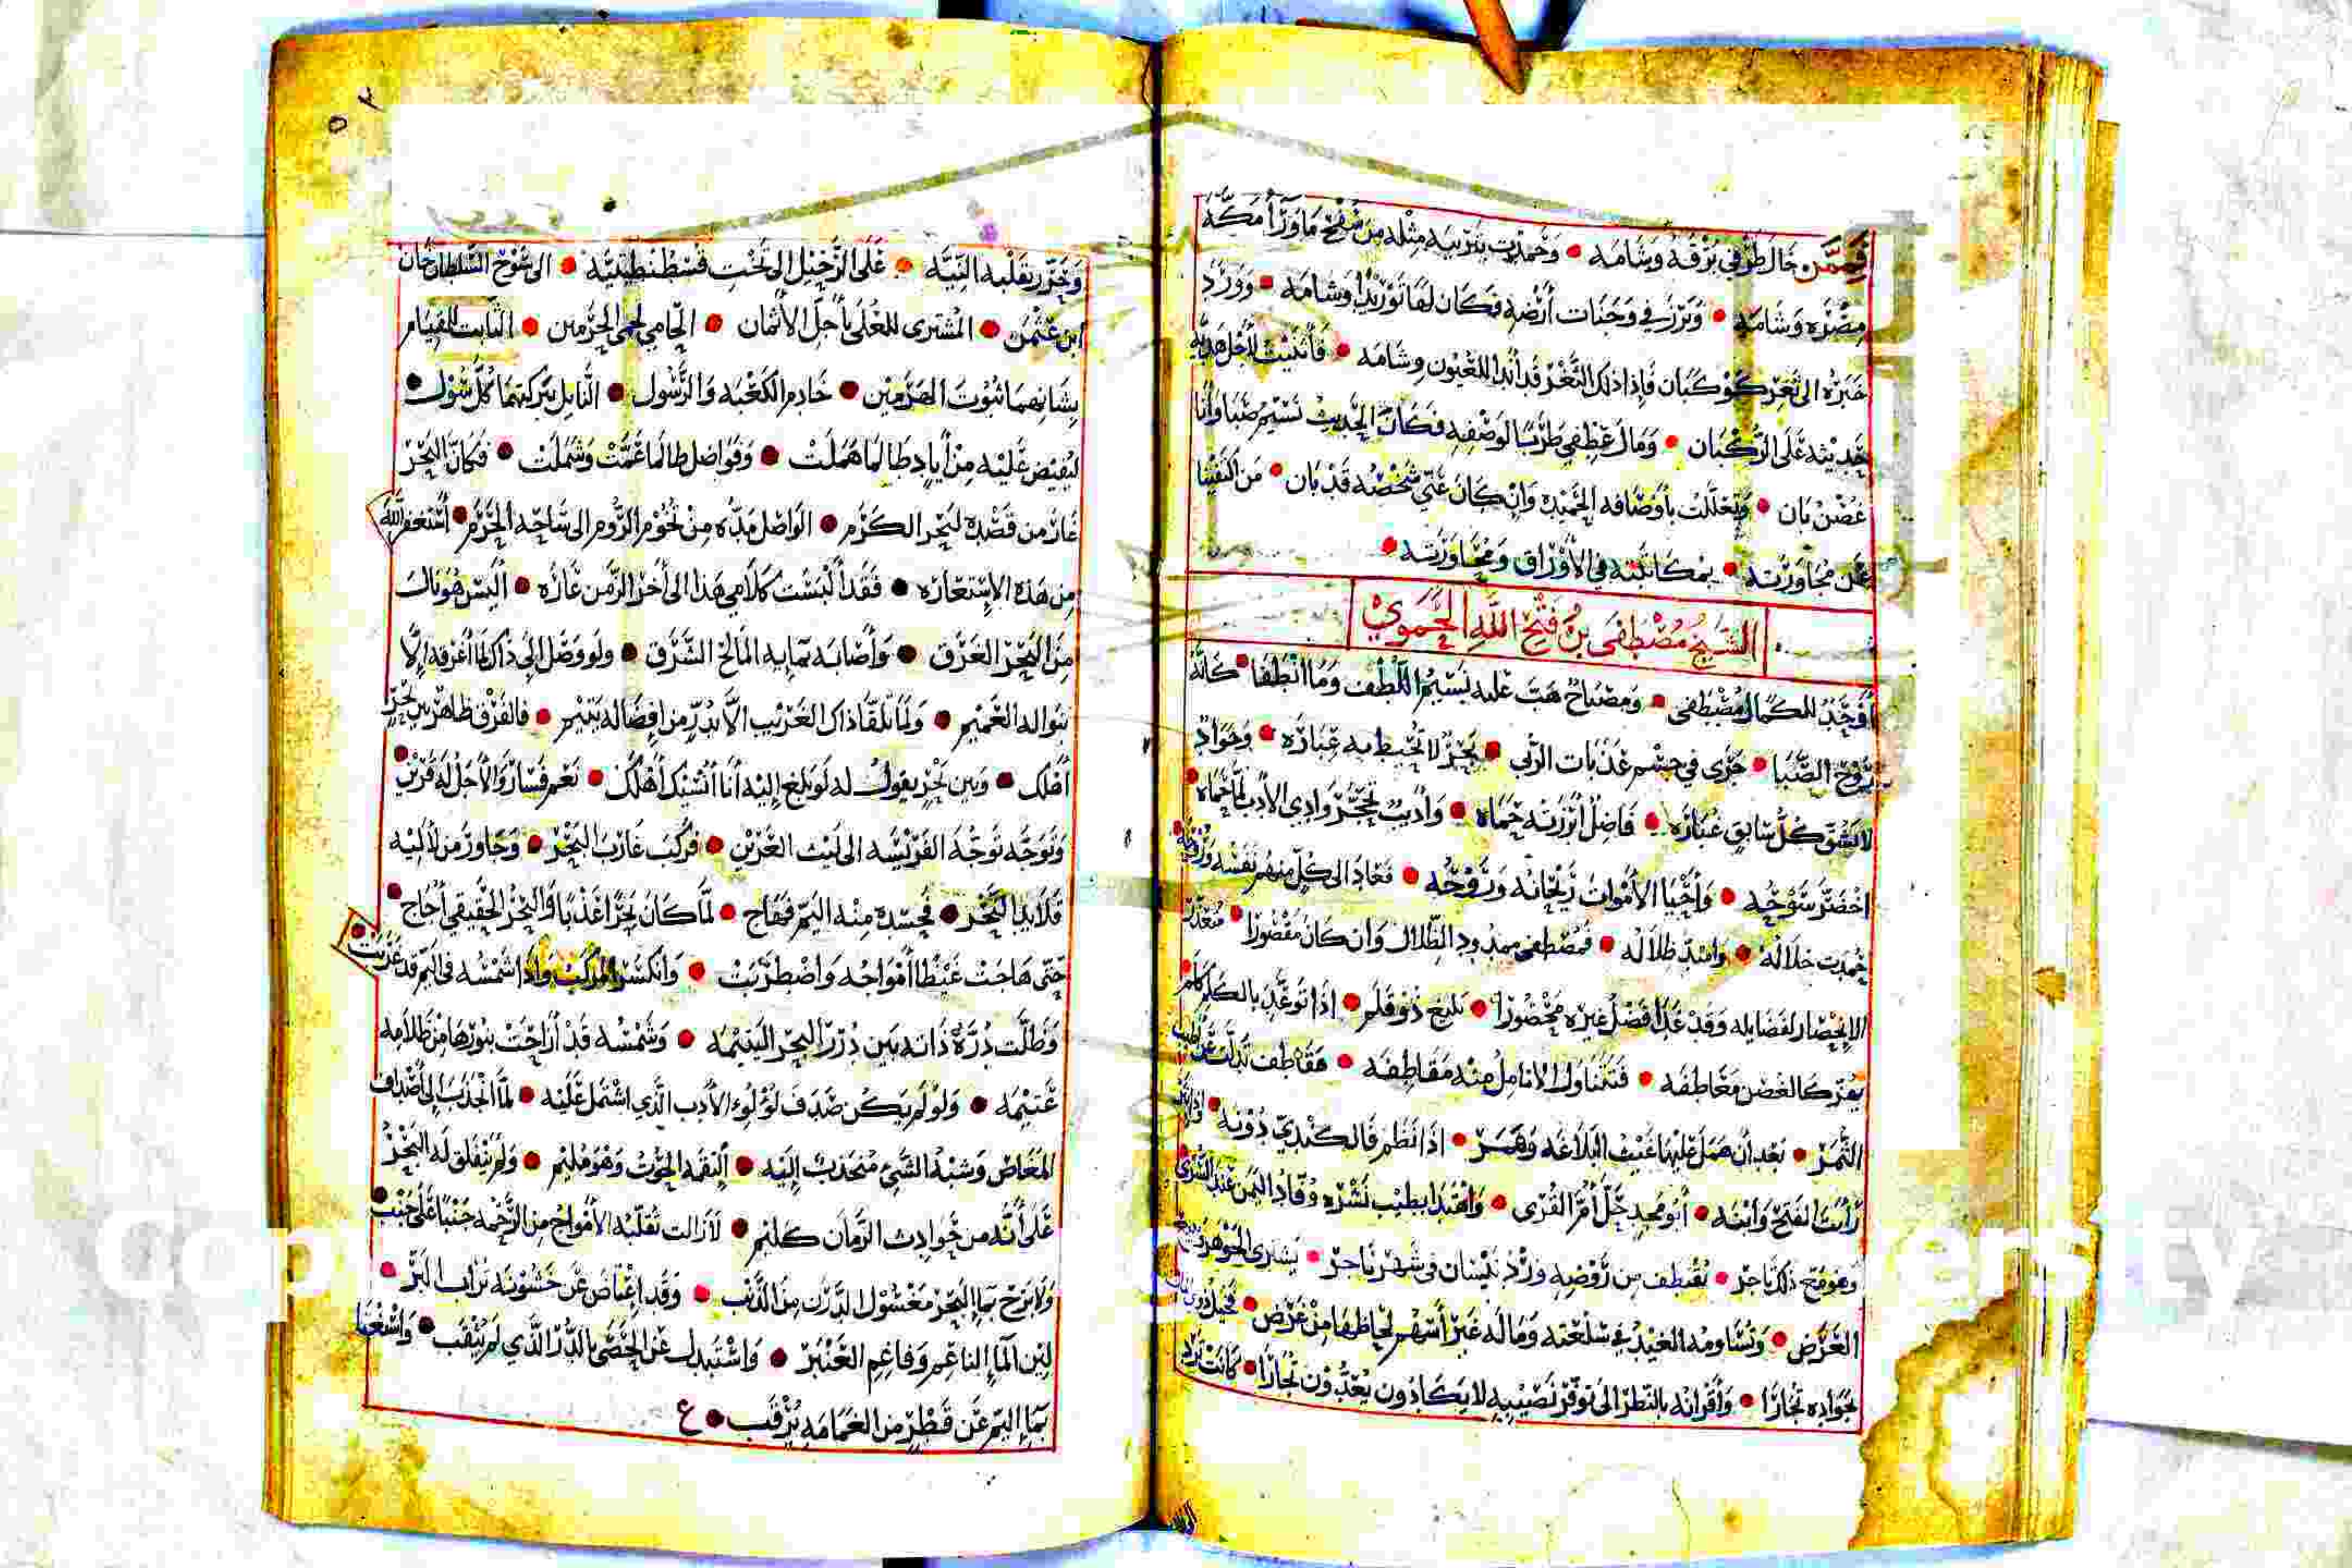 فممن جال طرفي برقه وشامه • وحمدت بتربيه مثله من منتج ما وراء مكة
مصره وشامه • وبرز في وجنات أرضه فكان لها توريدا وشامه • وورد
خبره الى تعز كوكبان فإذا ذلك الثغر قد أبدا للعيون وشامه • فأثنيت لأجل هديه
حديثه على الركبان • ومال عطفي طربا لوصفه فكان الحديث نسيم صبا وأنا
غصن بان • وتعللت بأوصافه الحميده وإن كان عني شخصه قد بان • من اكتفينا
عن مجاورته • بمكاتبته في الأوراق ومحاورته •
الشيخ مصطفى بن فتح الله الحموي
أوحد للكمال مصطفى • ومصباح هب عليه نسيم اللطف وما انطفا • كأنه
روح الصبا • جرى في جسم عذبات الربى • بحر لا تحيط به عباره • وجواد
لا يشق كل سابق غباره • فاضل أبرزته حماه • وأديب تحجر وادي الأدب لما حماه
اخضر سوحه • وأحيا الأموات ريحانه وروحه • فعاد الى كل منهم نفسه
حمدت خلاله • وامتد ظلاله • فمصطفى ممدود الظلال وان كان مقصورا • متعذر
الانحصار لفضايله وقد غدا فضل غيره محصورا • بليغ ذو قلم • اذا توغل بالكلم كلم
يهز كالغصن معاطفه • فتتناول الانامل منه مقاطفه • مقاطف تدلت عن اطيب
الثمر • بعد أن همل عليها غيث البلاغه وهمر • اذا نظم فالكندي دونه •
رأيت الفتح وابنه • أبو محمد حل أم القرى • واهتدا بطيب نشره وفاد اليمن عند السرى
وهو مع ذلك تاجر • يقتطف من روضه ورد نيسان في شهر ناجر • يشترى الجوهر
العرض • وتساومه الغيد في سلعته وماله غير أسهم لحاظها من غرض •
بجواده تجارا • وأقرانه بالنظر الى توفر نصيبه لا يكادون يعدون تجارا • كانت
وحرر بقلبه النيه • على الرحيل الى تخت قسطنطينيه • الى سوح السلطان خان
ابن عثمن • المشترى للعلى بأجل الأثمان • الحامي لحمى الحرمين • الثابت للقيام
بشانهما ثبوت الهرمين • خادم الكعبه والرسول • النايل ببركتهما كل سول •
ليفيض عليه من أياد طالما هملت • وفواضل طالما عمت وشملت • فكان البحر
غار من قصده لبحر الكرم • الواصل مده من تخوم الروم الى ساحه الحرم • أستغفر الله
من هذه الاستعاره • فقد ألبست كلامي هذا الى أخر الزمن عاره • أليس هو نال
من البحر الغرق • وأصابه بمايه المالح الشرق • ولو وصل إلى ذاك لما أغرقه إلا
بنواله العميم • ولما تلقا ذاك الغريب الا بدر من افضاله يتيم • فالفرق ظاهر بين بحر
أهلك • وبين بحر يقول له لو بلغ إليه أنا أنشيك أهلك • نعم فسار والأجل له قرين
وتوجه توجه الفريسه الى ليث العرين • فركب غارب البحر • وجاور من لآليه
قلايد النحر • فحسده منه اليم فهاج • لما كان بحرا عذبا والبحر الحقيقي أجاج •
حتى هاجت غيظا أمواجه واضطربت • وانكسر المركب واذا شمسه في اليم قد غربت •
وظلت درة ذاته بين درر البحر اليتيمه • وشمسه قد أزاحت بنورها من ظلامه
عتيمه • ولو لم يكن صدف لؤلؤ الأدب الذي اشتمل عليه • لما انجذب إلى أصداف
المغاص وشبه الشيء منجذب إليه • إلتقمه الحوت وهو مليم • ولم ينفلق له البحر
على أنه من حوادث الزمان كليم • لازالت تقلبه الأمواج من الرحمه جنبا على جنب •
ولا برح بماء البحر مغسول الدرن من الذنب • وقد اعتاض عن خشونة تراب البر •
لين الماء الناعم وفاغم العنبر • واستبدل عن الحصى بالدر الذي لم يثقب • واستغنا
بماء اليم عن قطر من الغمامه يرقب •